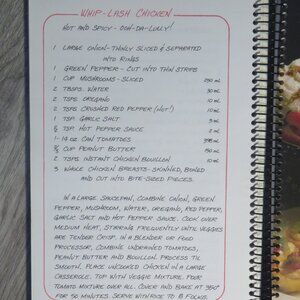 WHIP-LASH CHICKEN
HOT AND SPICY - OOH-DA-LOLLY!
1 LARGE ONION - THINLY SLICED & SEPARATED
INTO RINGS
1 GREEN PEPPER - CUT INTO THIN STRIPS
1 CUP MUSHROOMS - SLICED 250 mL
2 TBSPS. WATER 30 mL
2 TSPS. OREGANO 10 mL
2 TSPS. CRUSHED RED PEPPER (HOT!) 10 mL
1 TSP. GARLIC SALT 5 mL
½ TSP. HOT PEPPER SAUCE 2 mL
1 - 14 OZ. CAN TOMATOES 398 mL
¾ CUP PEANUT BUTTER 180 mL
2 TSPS. INSTANT CHICKEN BOUILLON 10 mL
3 WHOLE CHICKEN BREASTS - SKINNED, BONED
AND CUT INTO BITE-SIZED PIECES.
IN A LARGE SAUCEPAN, COMBINE ONION, GREEN
PEPPER, MUSHROOM, WATER, OREGANO, RED PEPPER,
GARLIC SALT AND HOT PEPPER SAUCE. COOK OVER
MEDIUM HEAT, STIRRING FREQUENTLY UNTIL VEGGIES
ARE TENDER CRISP. IN A BLENDER OR FOOD
PROCESSOR, COMBINE UNDRAINED TOMATOES,
PEANUT BUTTER AND BOUILLON. PROCESS TIL
SMOOTH. PLACE UNCOOKED CHICKEN IN A LARGE
CASSEROLE. TOP WITH VEGGIE MIXTURE. POUR
TOMATO MIXTURE OVER ALL. COVER AND BAKE AT 350°
FOR 50 MINUTES. SERVE WITH RICE TO 8 FOLKS.